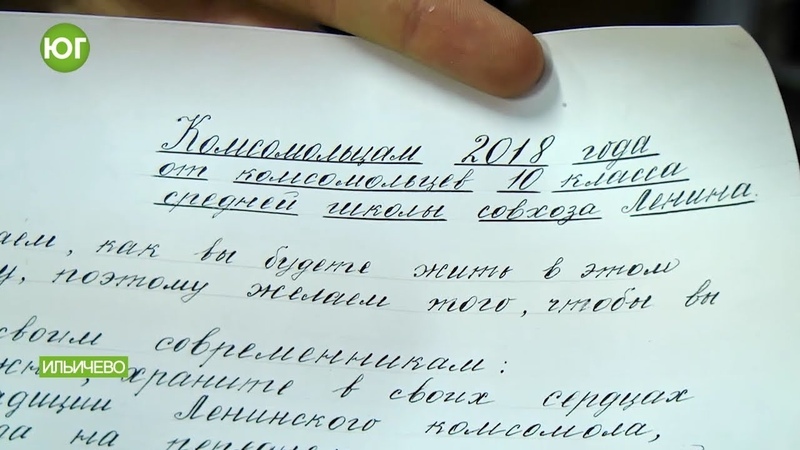 ЮГ
Комсомольцам 2018 года
от комсомольцев 10 класса
средней школы совхоза Ленина.
как вы будете жить в этом
поэтому желаем того, чтобы вы
своим современникам:
ИЛЬИЧЕВО
храните в своих сердцах
Ленинского комсомола,
на